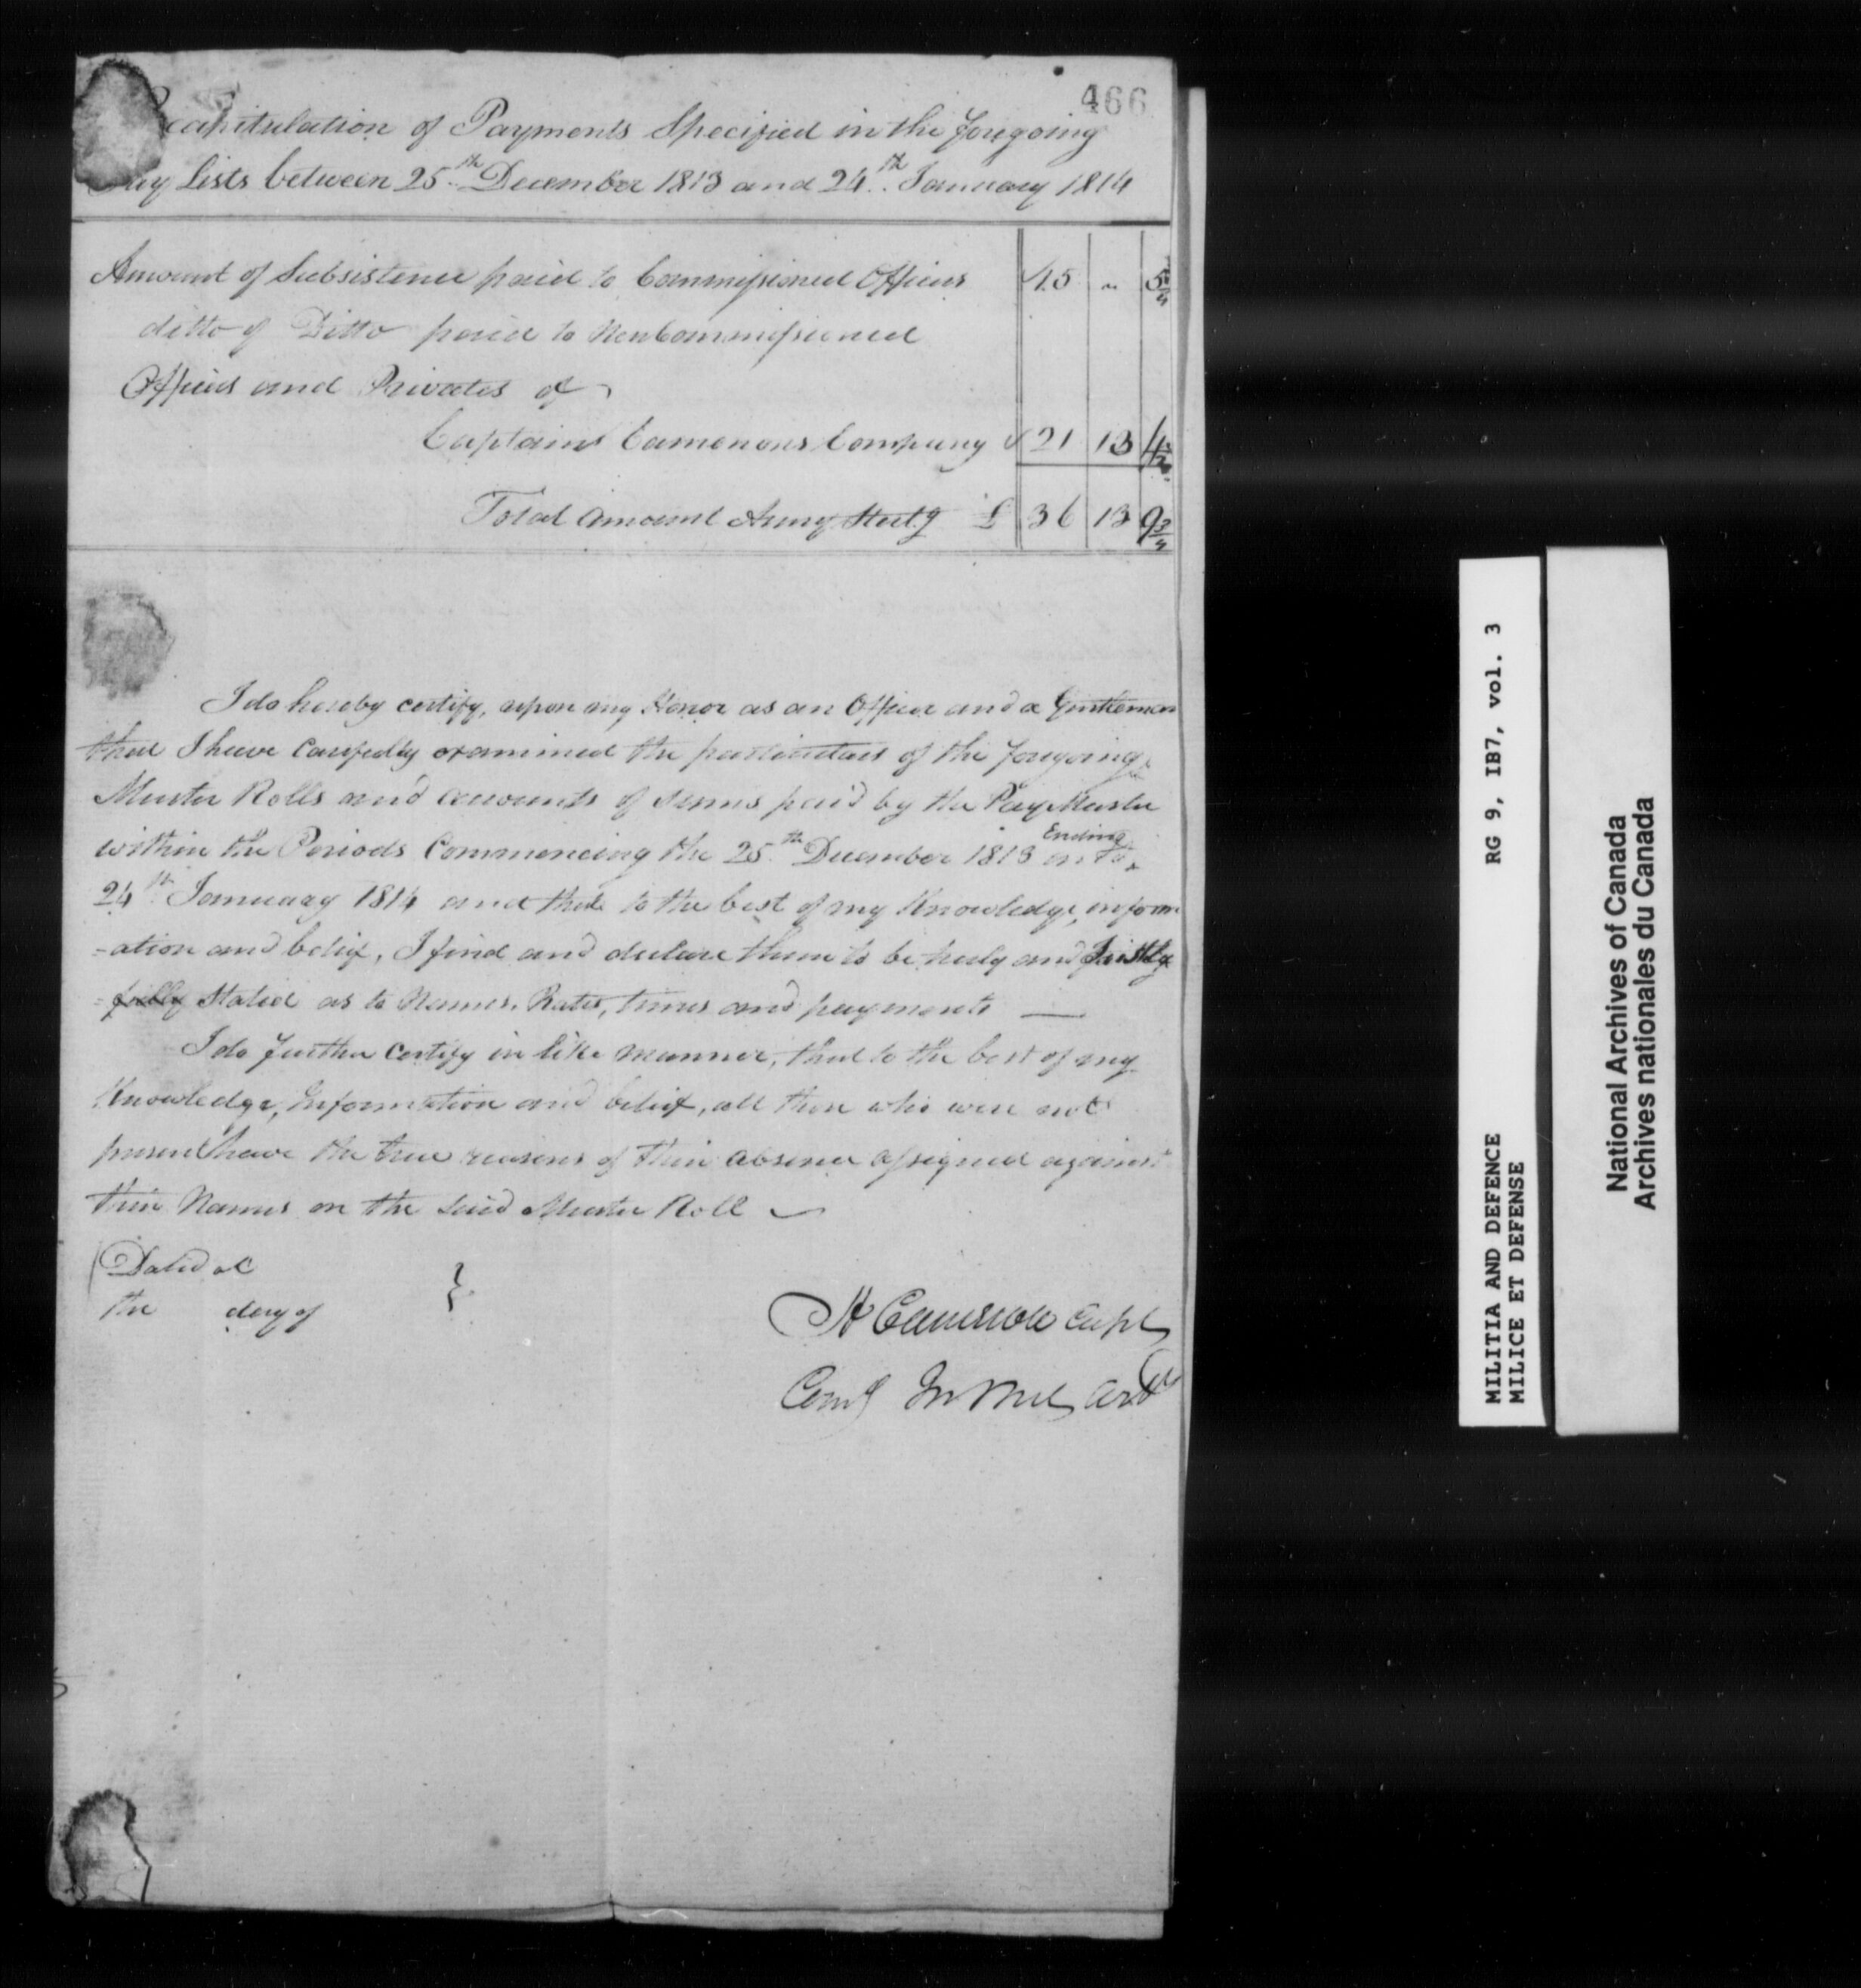 466
Recapitulation of Payments Specified in the foregoing
Pay Lists between 25th December 1813 and 24th January 1814
Amount of Subsistence paid to Commissioned Officers √15 " 5¼
ditto of Ditto paid to NonCommissioned
Officers and Privates of
Captains Camerons Company √ 21 13 4½
Total Amount Army Sterlg £ 36 13 9¾
I do hereby certify, upon my Honor as an Officer and a Gentleman
that I have carefully examined the particulars of the foregoing
Muster Rolls and accounts of sums paid by the PayMaster
within the Periods Commencing the 25th December 1813 Ending
24th January 1814 and that to the best of my Knowledge, inform
-ation and belief, I find and declare them to be truly and Justly
fully Stated as to Names, Rates, times and payments —
I do further Certify in like manner, that to the best of my
Knowledge, Information and belief, all those who were not
present have the true reasons of their absence assigned against
their Names on the said Muster Roll
Dated at
the day of }
A Cameron Capt
Comg In Mil Arty
RG 9, IB7, vol. 3
MILITIA AND DEFENCE
MILICE ET DEFENSE
National Archives of Canada
Archives nationales du Canada